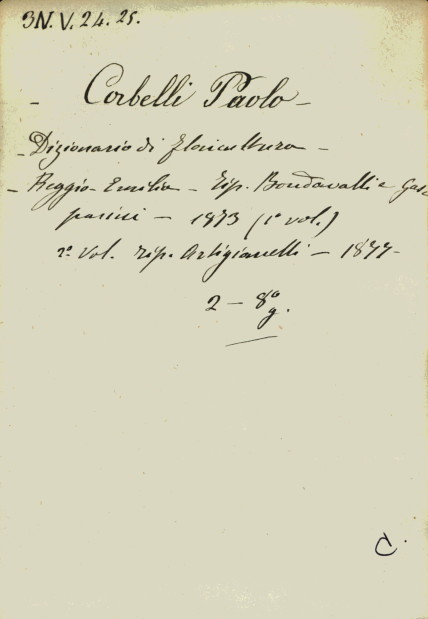 3N.V.24.25.
- Corbelli Paolo -
- Dizionario di floricultura -
- Reggio-Emilia - Tip. Bondavalli e Gas
parini - 1873 (1° vol.)
2° vol. Tip. Artigianelli - 1877-
2 - 8° g.
C.